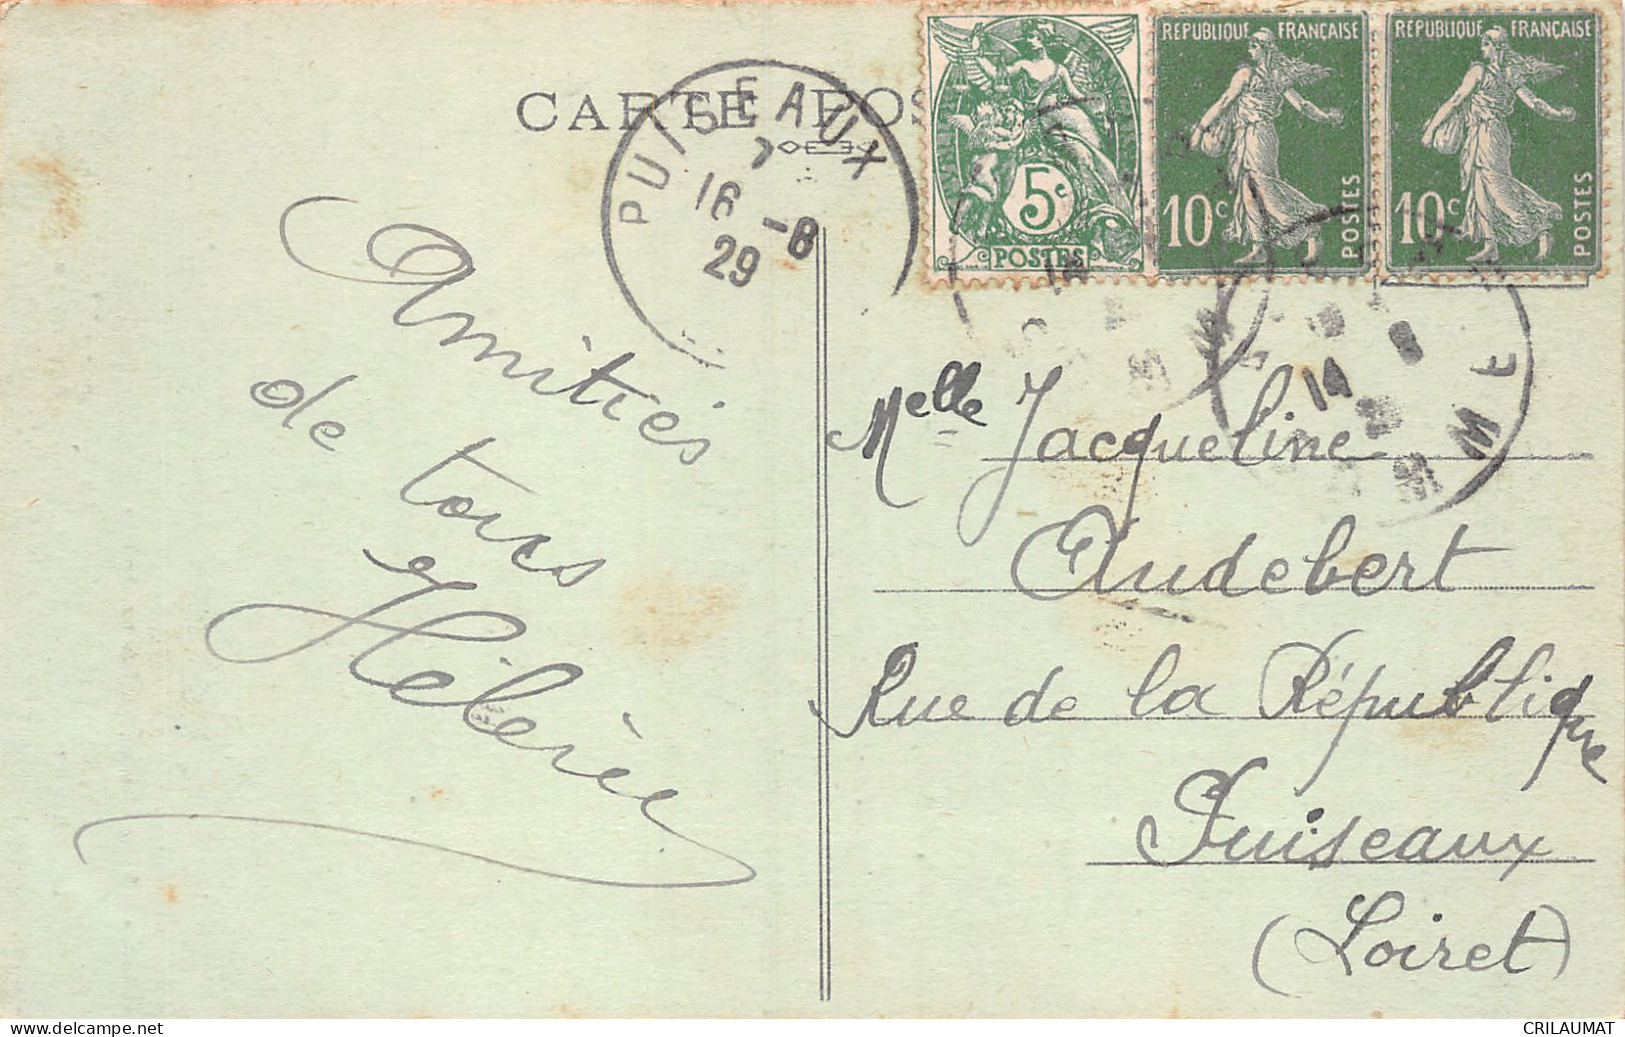 CARTE POS
PUISEAUX
7
16 -8
29
RÉPUBLIQUE FRANÇAISE
10c
POSTES
RÉPUBLIQUE FRANÇAISE
10c
POSTES
5c
POSTES
14
Amitiés
de tous
Hélène
Melle Jacqueline
Audebert
Rue de la République
Puiseaux
(Loiret)
www.delcampe.net
CRILAUMAT